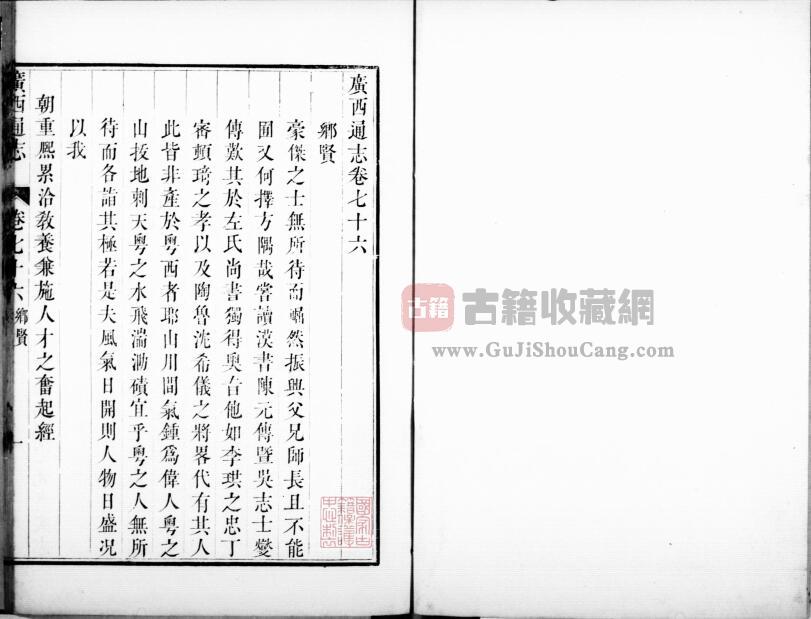 廣西通志卷七十六
鄉賢
豪傑之士無所待而輒然振興父兄師長且不能
囿又何擇方隅哉嘗讀漢書陳元傳暨吳志士燮
傳歎其於左氏尚書獨得奧旨他如李珙之忠丁
審頼琦之孝以及陶魯沈希儀之將畧代有其人
此皆非產於粵西者耶山川間氣鍾爲偉人粵之
山拔地刺天粵之水飛湍泐磧宜乎粵之人無所
待而各詣其極若是夫風氣日開則人物日盛况
以我
朝重熈累洽教養兼施人才之奮起經
廣西通志 卷七十六 鄉賢 一
古籍 古籍收藏網
www.GuJiShouCang.com